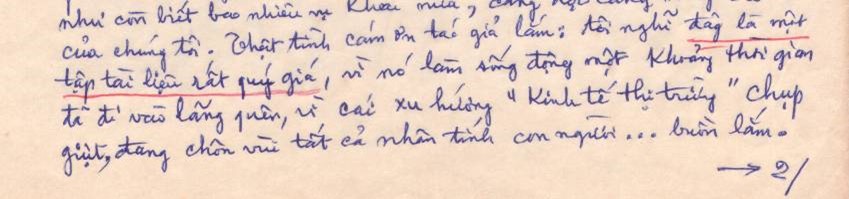 như còn biết bao nhiêu vụ khoai mùa, càng
của chúng tôi. Thật tình cám ơn tác giả lắm: tôi nghĩ đây là một
tập tài liệu rất quý giá, vì nó làm sống động một khoảng thời gian
đã đi vào lãng quên, vì cái xu hướng "Kinh tế thị trường" chụp
giựt, đang chôn vùi tất cả nhân tính con người... buồn lắm.
→ 2/